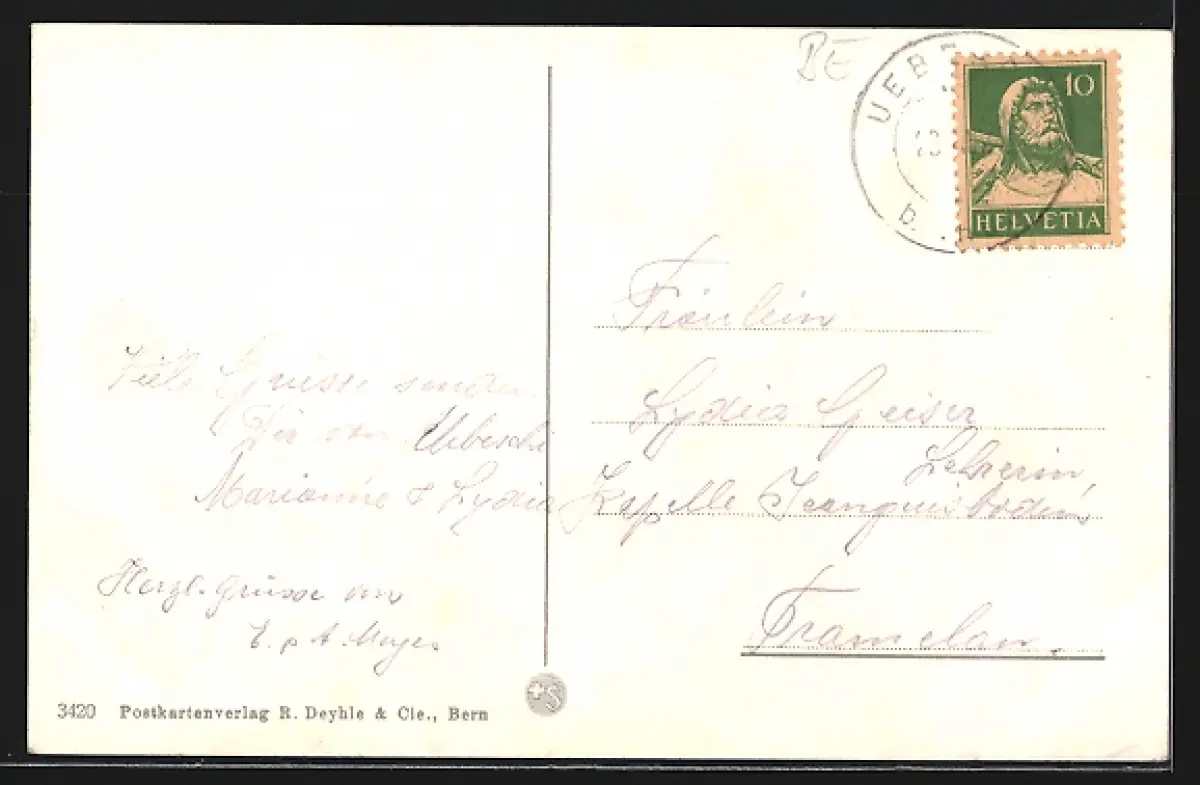 BE
UEB
b.
10
HELVETIA
Viele Grüsse senden
Dir von Uebeschi
Marianne & Lydia
Herzl. Grüsse von
Fräulein
Lydia Geiser
Lehrerin,
Kapelle Jeanguisboden
Tramelan.
3420 Postkartenverlag R. Deyhle & Cie., Bern